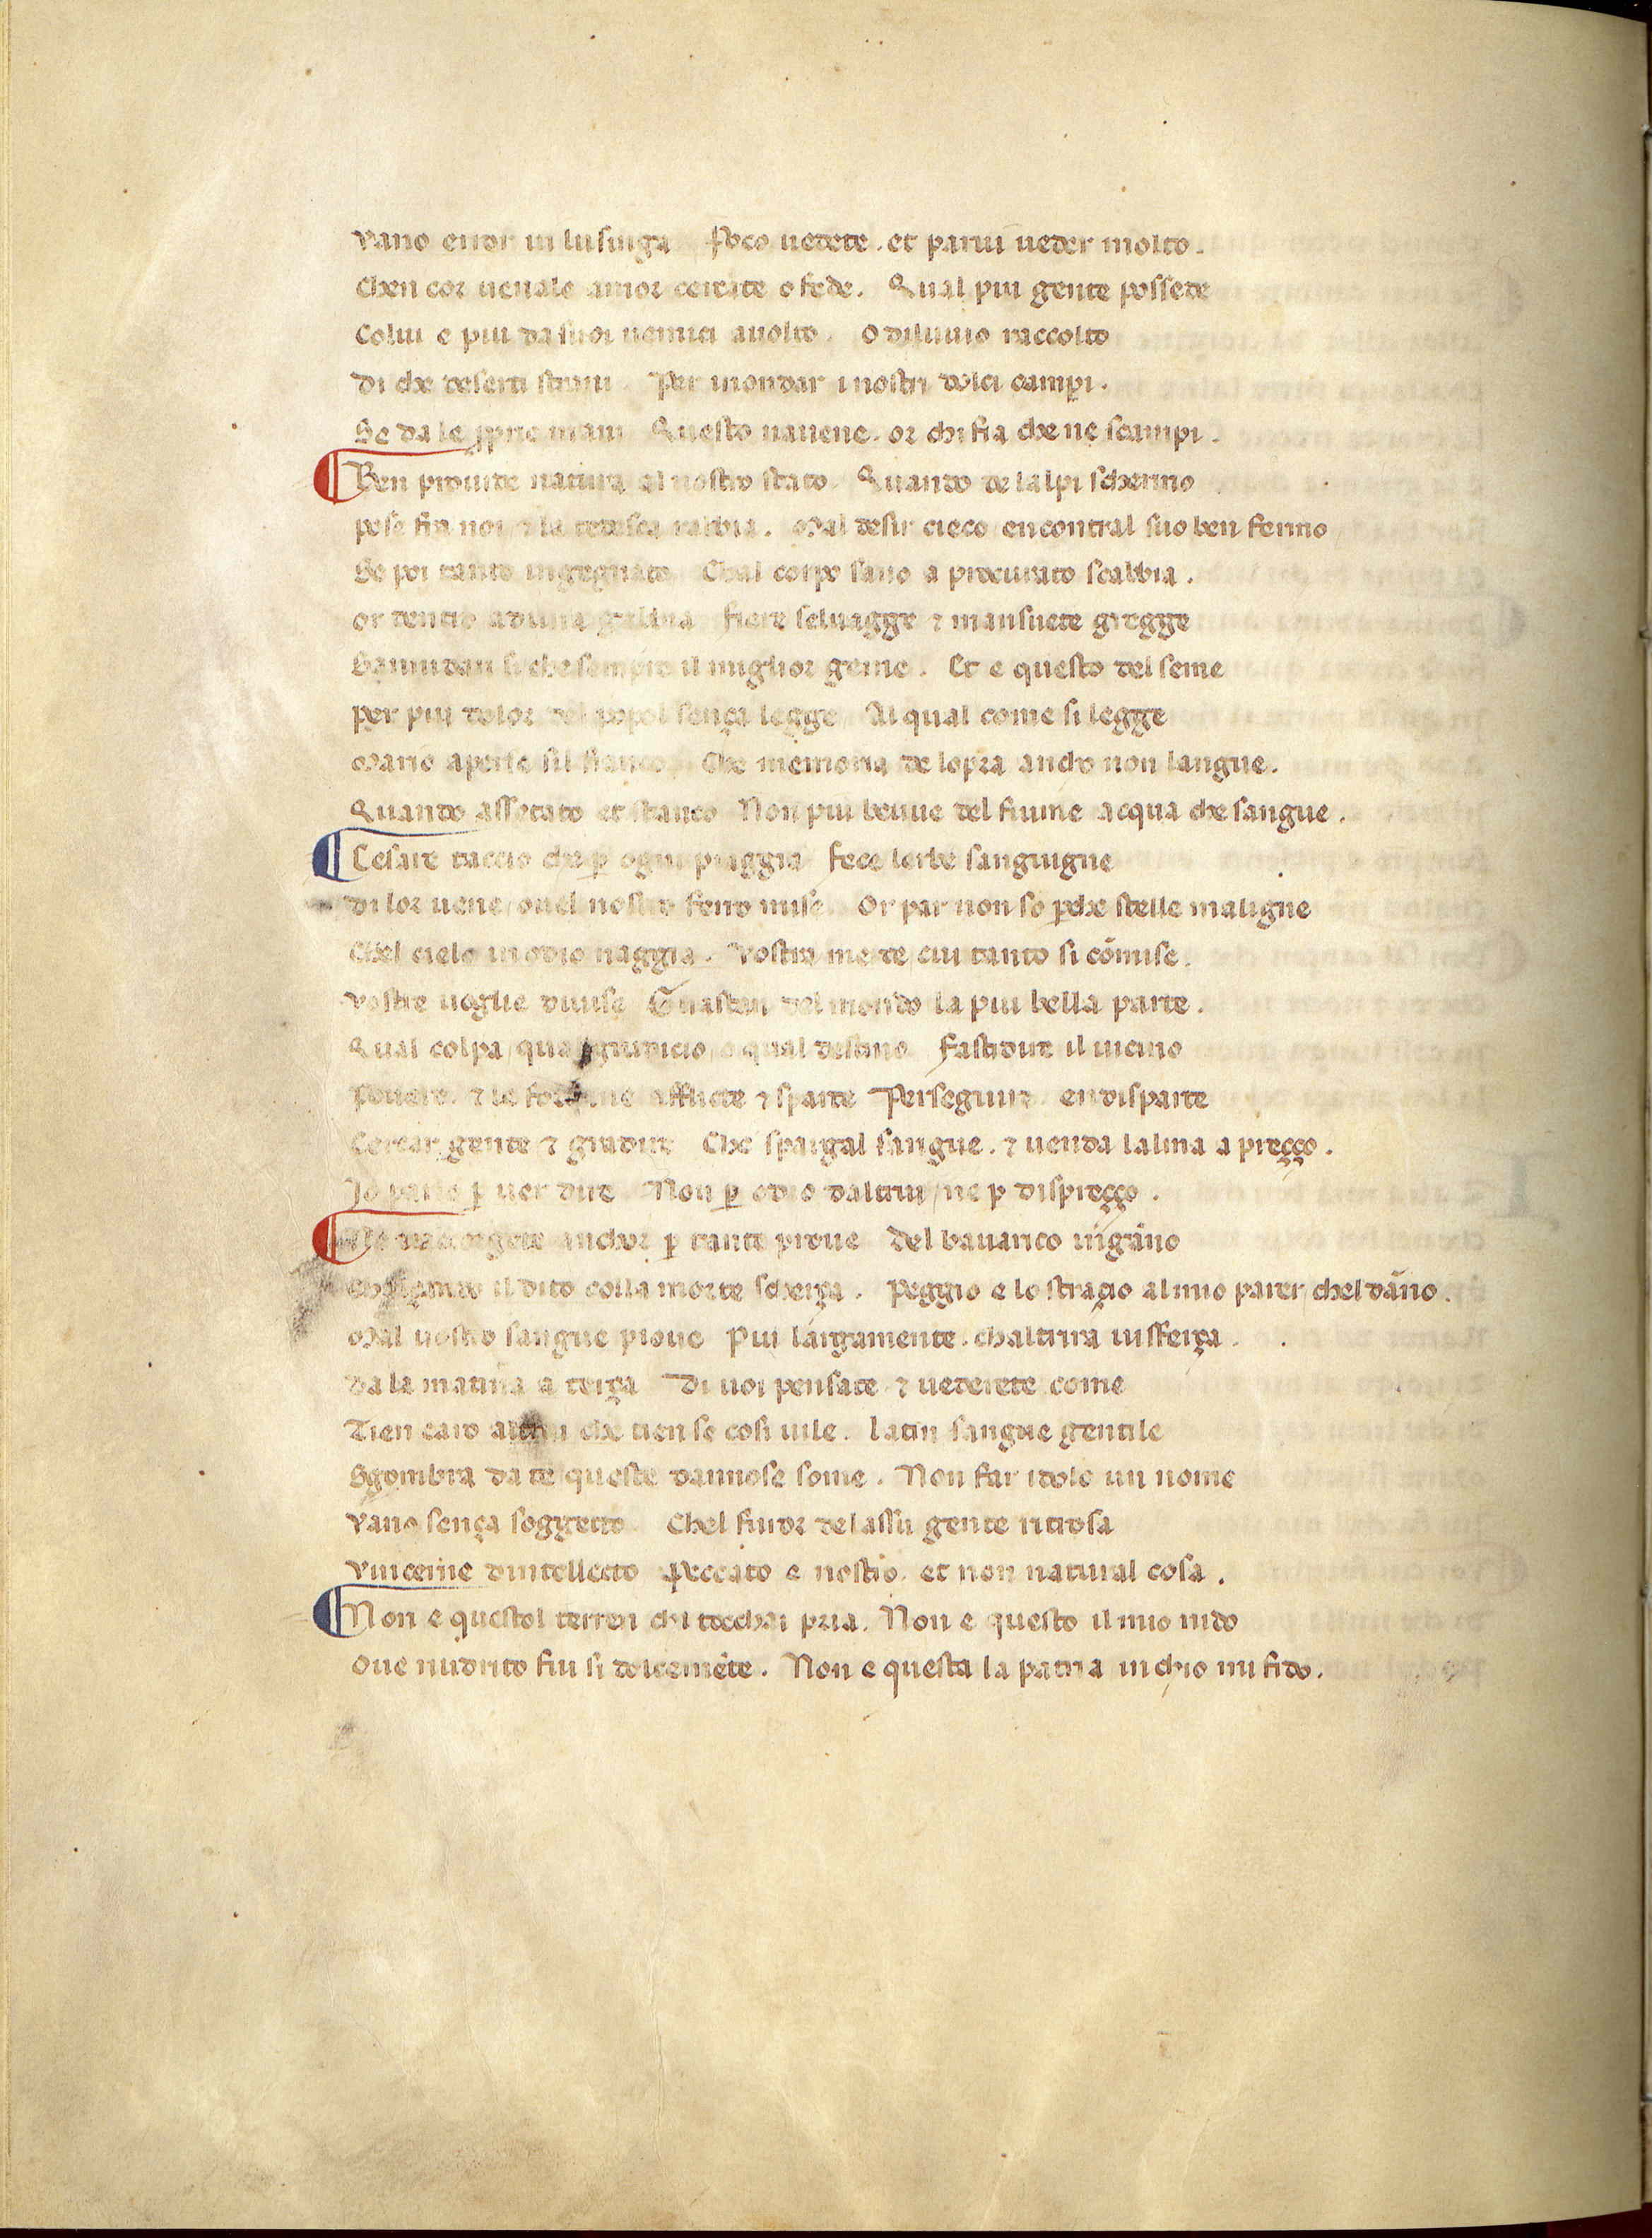 Vano error ui lusinga Poco uedete . et parui ueder molto .
Chen cor uenale amor cercate o fede . Qual piu gente possede
Colui e piu da suoi nemici auolto . O diluuio raccolto
Di che deserti strani . Per inondar i nostri dolci campi .
Se da le ꝓprie mani Questo nauene . or chi fia che ne scampi .
Ben prouide natura al nostro stato Quando de lalpi schermo
pose fra noi ⁊ la tedesca rabbia . Mal desir cieco encontral suo ben fermo
Se poi tanto ingegnato Chal corpo sano a procurato scabbia .
or dentro aduna gabbia fiere seluagge ⁊ mansuete gregge
Sannidan si che sempre il miglior geme . Et e questo del seme
per piu dolor del popol sença legge Al qual come si legge
Mario aperse sil fianco Che memoria de lopra ancho non langue .
Quando assetato et stanco Non piu beuue del fiume acqua che sangue .
Cesare taccio che ꝑ ogni piaggia fece lerbe sanguigne
di lor uene ouel nostro ferro mise Or par non so ꝑche stelle maligne
Chel cielo in odio naggia . Vostra merce cui tanto si cōmise .
Vostre uoglie diuise Guastan del mondo la piu bella parte .
Qual colpa qual giudicio o qual destino Fastidire il uicino
Pouero . ⁊ le fortune afflicte ⁊ sparte Perseguire endisparte
Cercar gente ⁊ gradire Che spargal sangue . ⁊ uenda lalma a preçço .
Io parlo ꝑ uer dire Non ꝑ odio daltrui ne ꝑ dispreçço .
Ne uaccorgete anchor ꝑ tante proue Del bauarico ingāno
Chalçando il dito colla morte scherça . Peggio e lo stracio al mio parer chel dāno .
Mal uostro sangue pioue Piu largamente . chaltrira uisferça .
Da la matina a terça Di uoi pensate ⁊ uederete come
Tien caro altrui che tien se cosi uile . Latin sangue gentile
Sgombra da te queste dannose some . Non far idolo un nome
Vano sença soggetto Chel furor de lassu gente ritrosa
Vincerne dintellecto Peccato e nostro . et non natural cosa .
Non e questol terren chi tocchai pria . Non e questo il mio nido
Oue nudrito fui si dolcemēte . Non e questa la patria in chio mi fido .